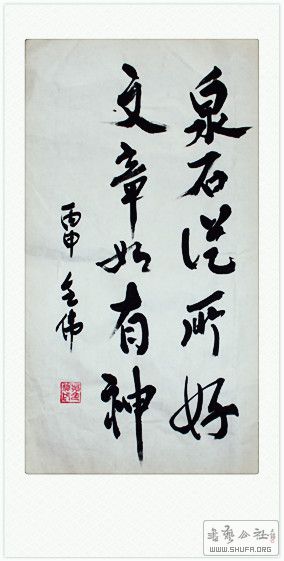 泉石從所好
文章如有神
丙申 金伟
WWW.SHUFA.ORG